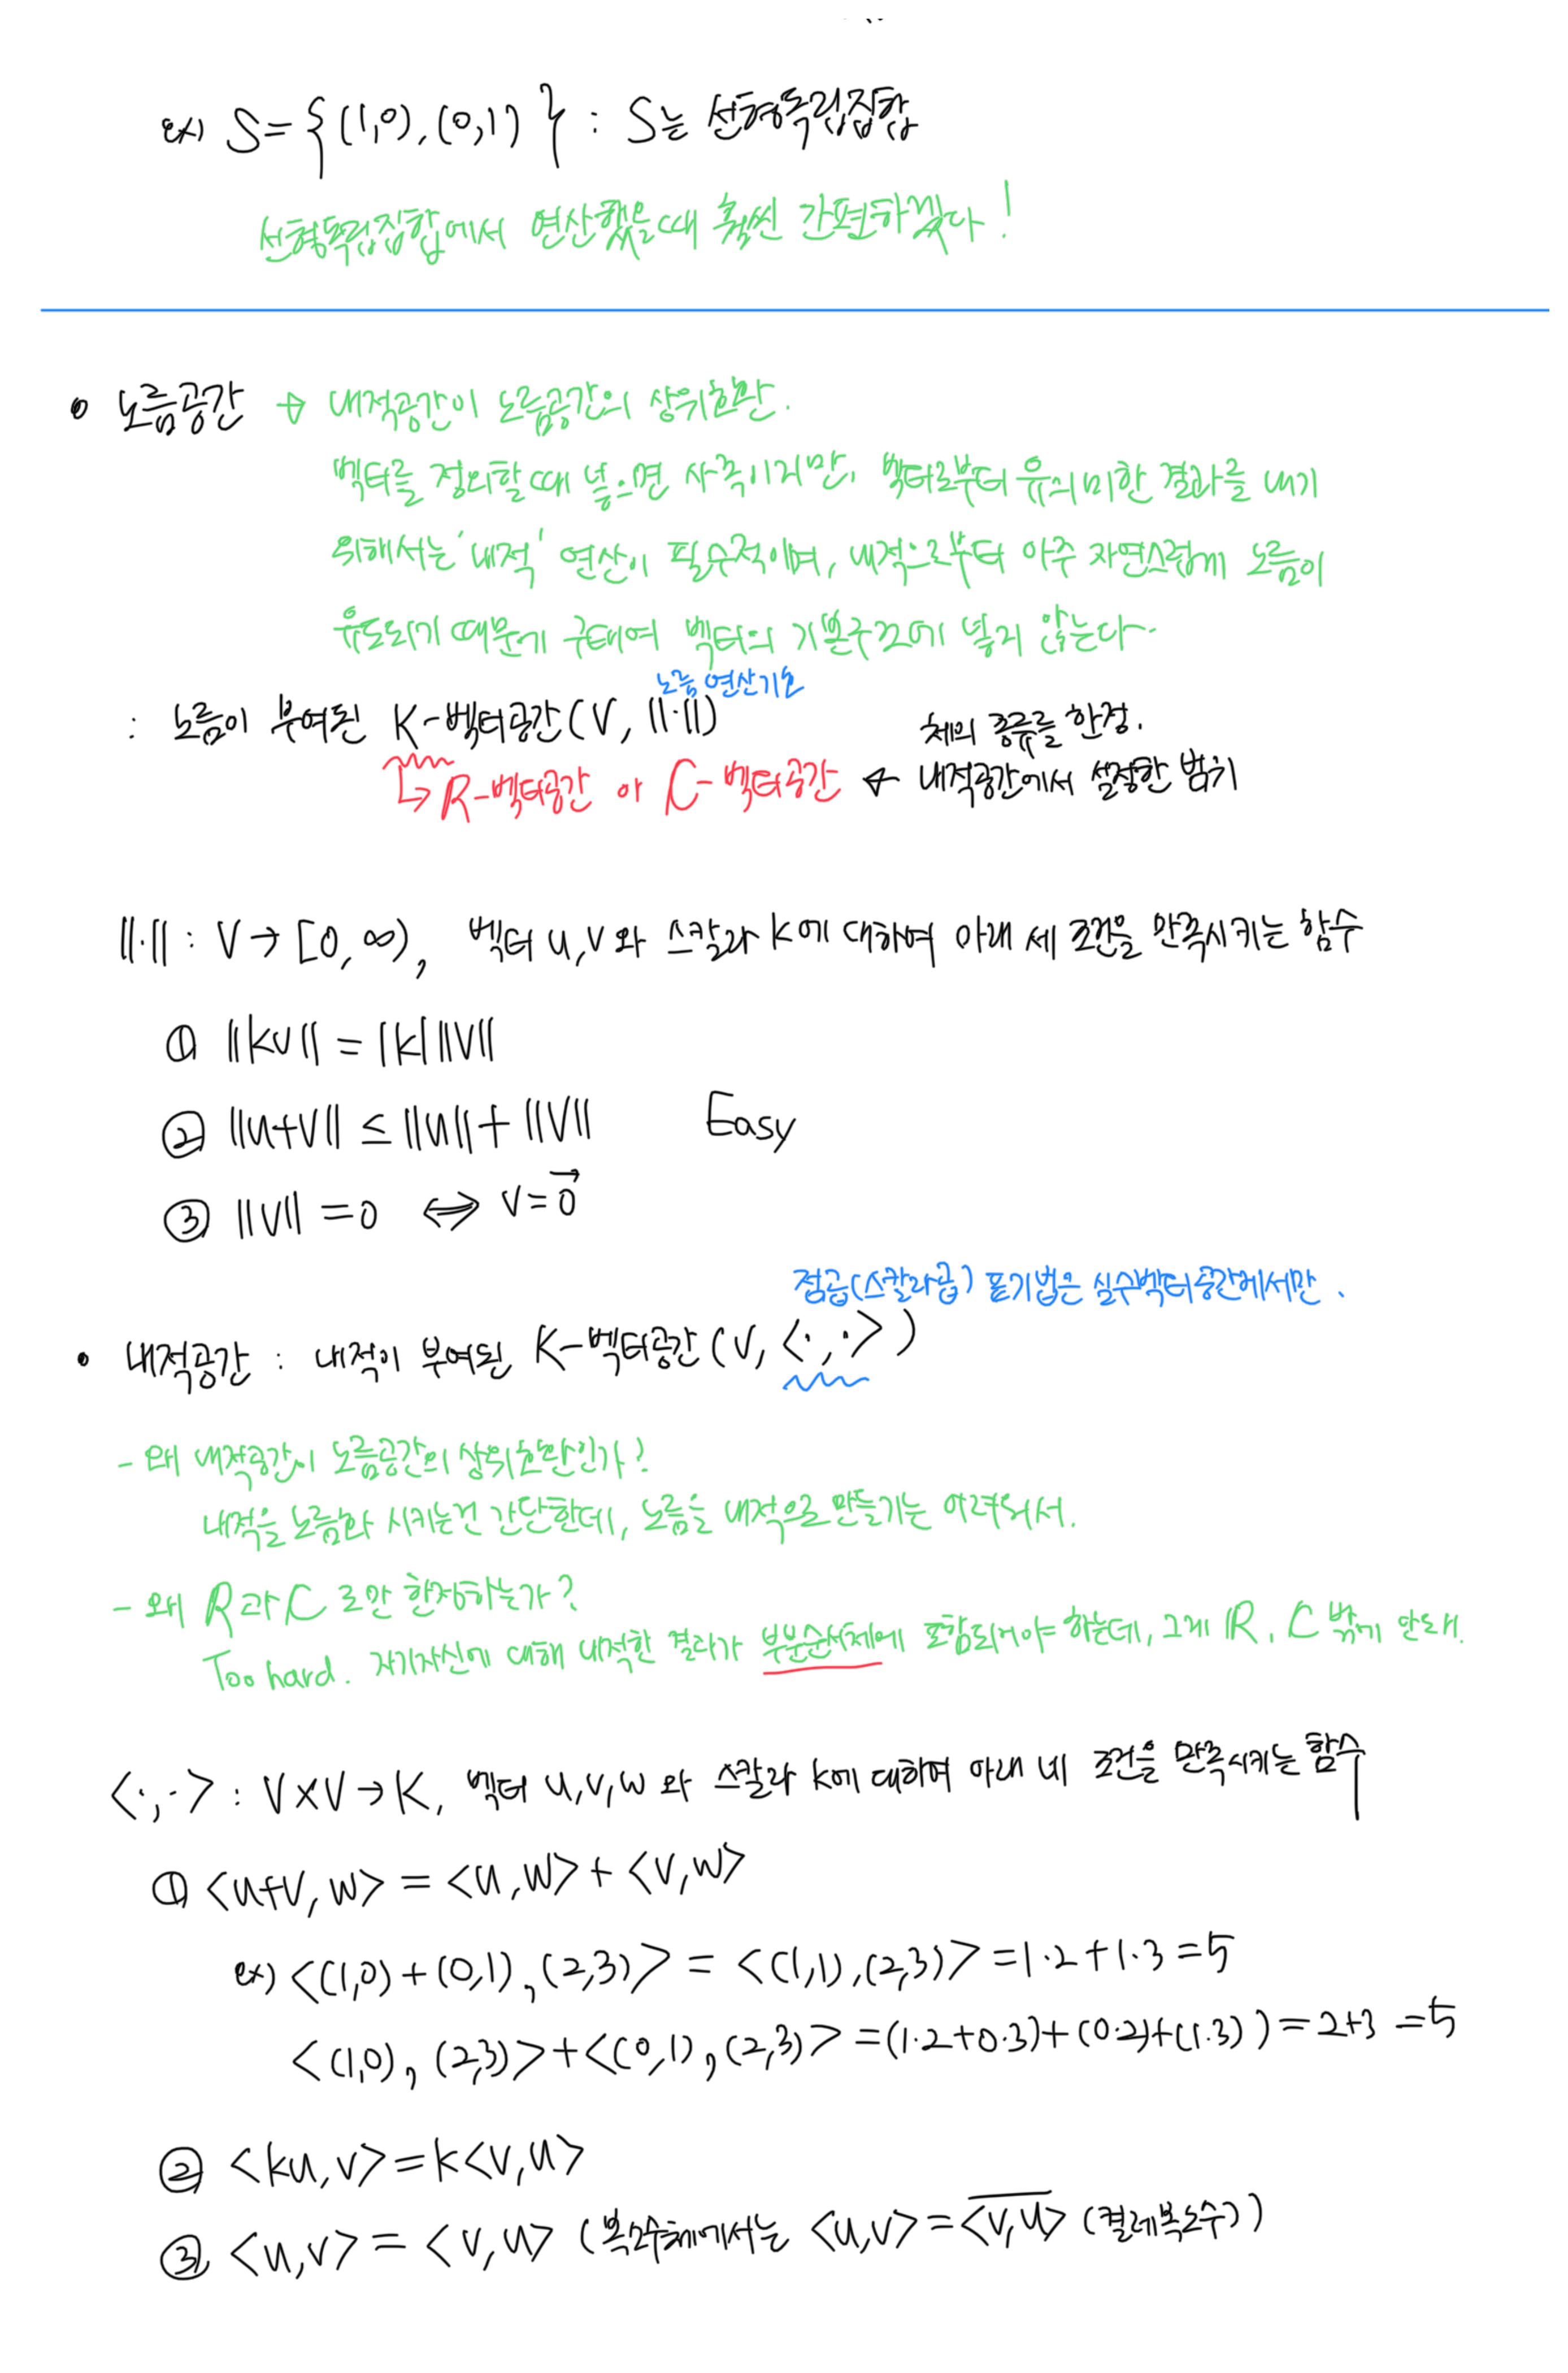 ex) S={(1,0),(0,1)} : S는 선형독립집합
선형독립집합에서 연산했을때 훨씬 간편하겠다!
• 노름공간 → 내적공간이 노름공간의 상위호환.
벡터를 정의할 때 넣으면 사족이지만, 벡터로부터 유의미한 결과를 내기
위해서는 '내적' 연산이 필수적이며, 내적으로부터 아주 자연스럽게 노름이
유도되기 때문에 구태여 벡터의 기본구조에 넣지 않는다~
노름 연산기호
: 노름이 부여된 K-벡터공간(V, ||·||)
체의 종류를 한정.
↳ R-벡터공간 or C-벡터공간 ← 내적공간에서 설정한 범위
||·|| : V → [0, ∞), 벡터 u,v 와 스칼라 k에 대하여 아래 세 조건을 만족시키는 함수
① ||kv|| = |k| ||v||
② ||u+v|| ≤ ||u|| + ||v|| Easy
③ ||v|| = 0 ⟺ v = 0⃗
점곱(스칼라곱) 표기법은 실수벡터공간에서만.
• 내적공간 : 내적이 부여된 K-벡터공간(V, <·,·>)
- 왜 내적공간이 노름공간의 상위호환인가?
내적을 노름화 시키는건 간단한데, 노름을 내적으로 만들기는 어려워서.
- 왜 R과 C 로만 한정하는가?
Too hard. 자기자신에 대해 내적한 결과가 부분순서체에 포함되어야 하는데, 그게 R, C 밖에 안돼.
<·,·> : V×V → K, 벡터 u,v,w 와 스칼라 k에 대하여 아래 네 조건을 만족시키는 함수
① <u+v, w> = <u,w> + <v,w>
ex) <(1,0)+(0,1),(2,3)> = <(1,1),(2,3)> = 1·2+1·3 = 5
<(1,0),(2,3)>+<(0,1),(2,3)> = (1·2+0·3)+(0·2)+(1·3)) = 2+3 = 5
② <ku,v> = k<v,u>
③ <u,v> = <v,u> (복소수체에서는 <u,v> = <v,u>̅ (켤레복소수))